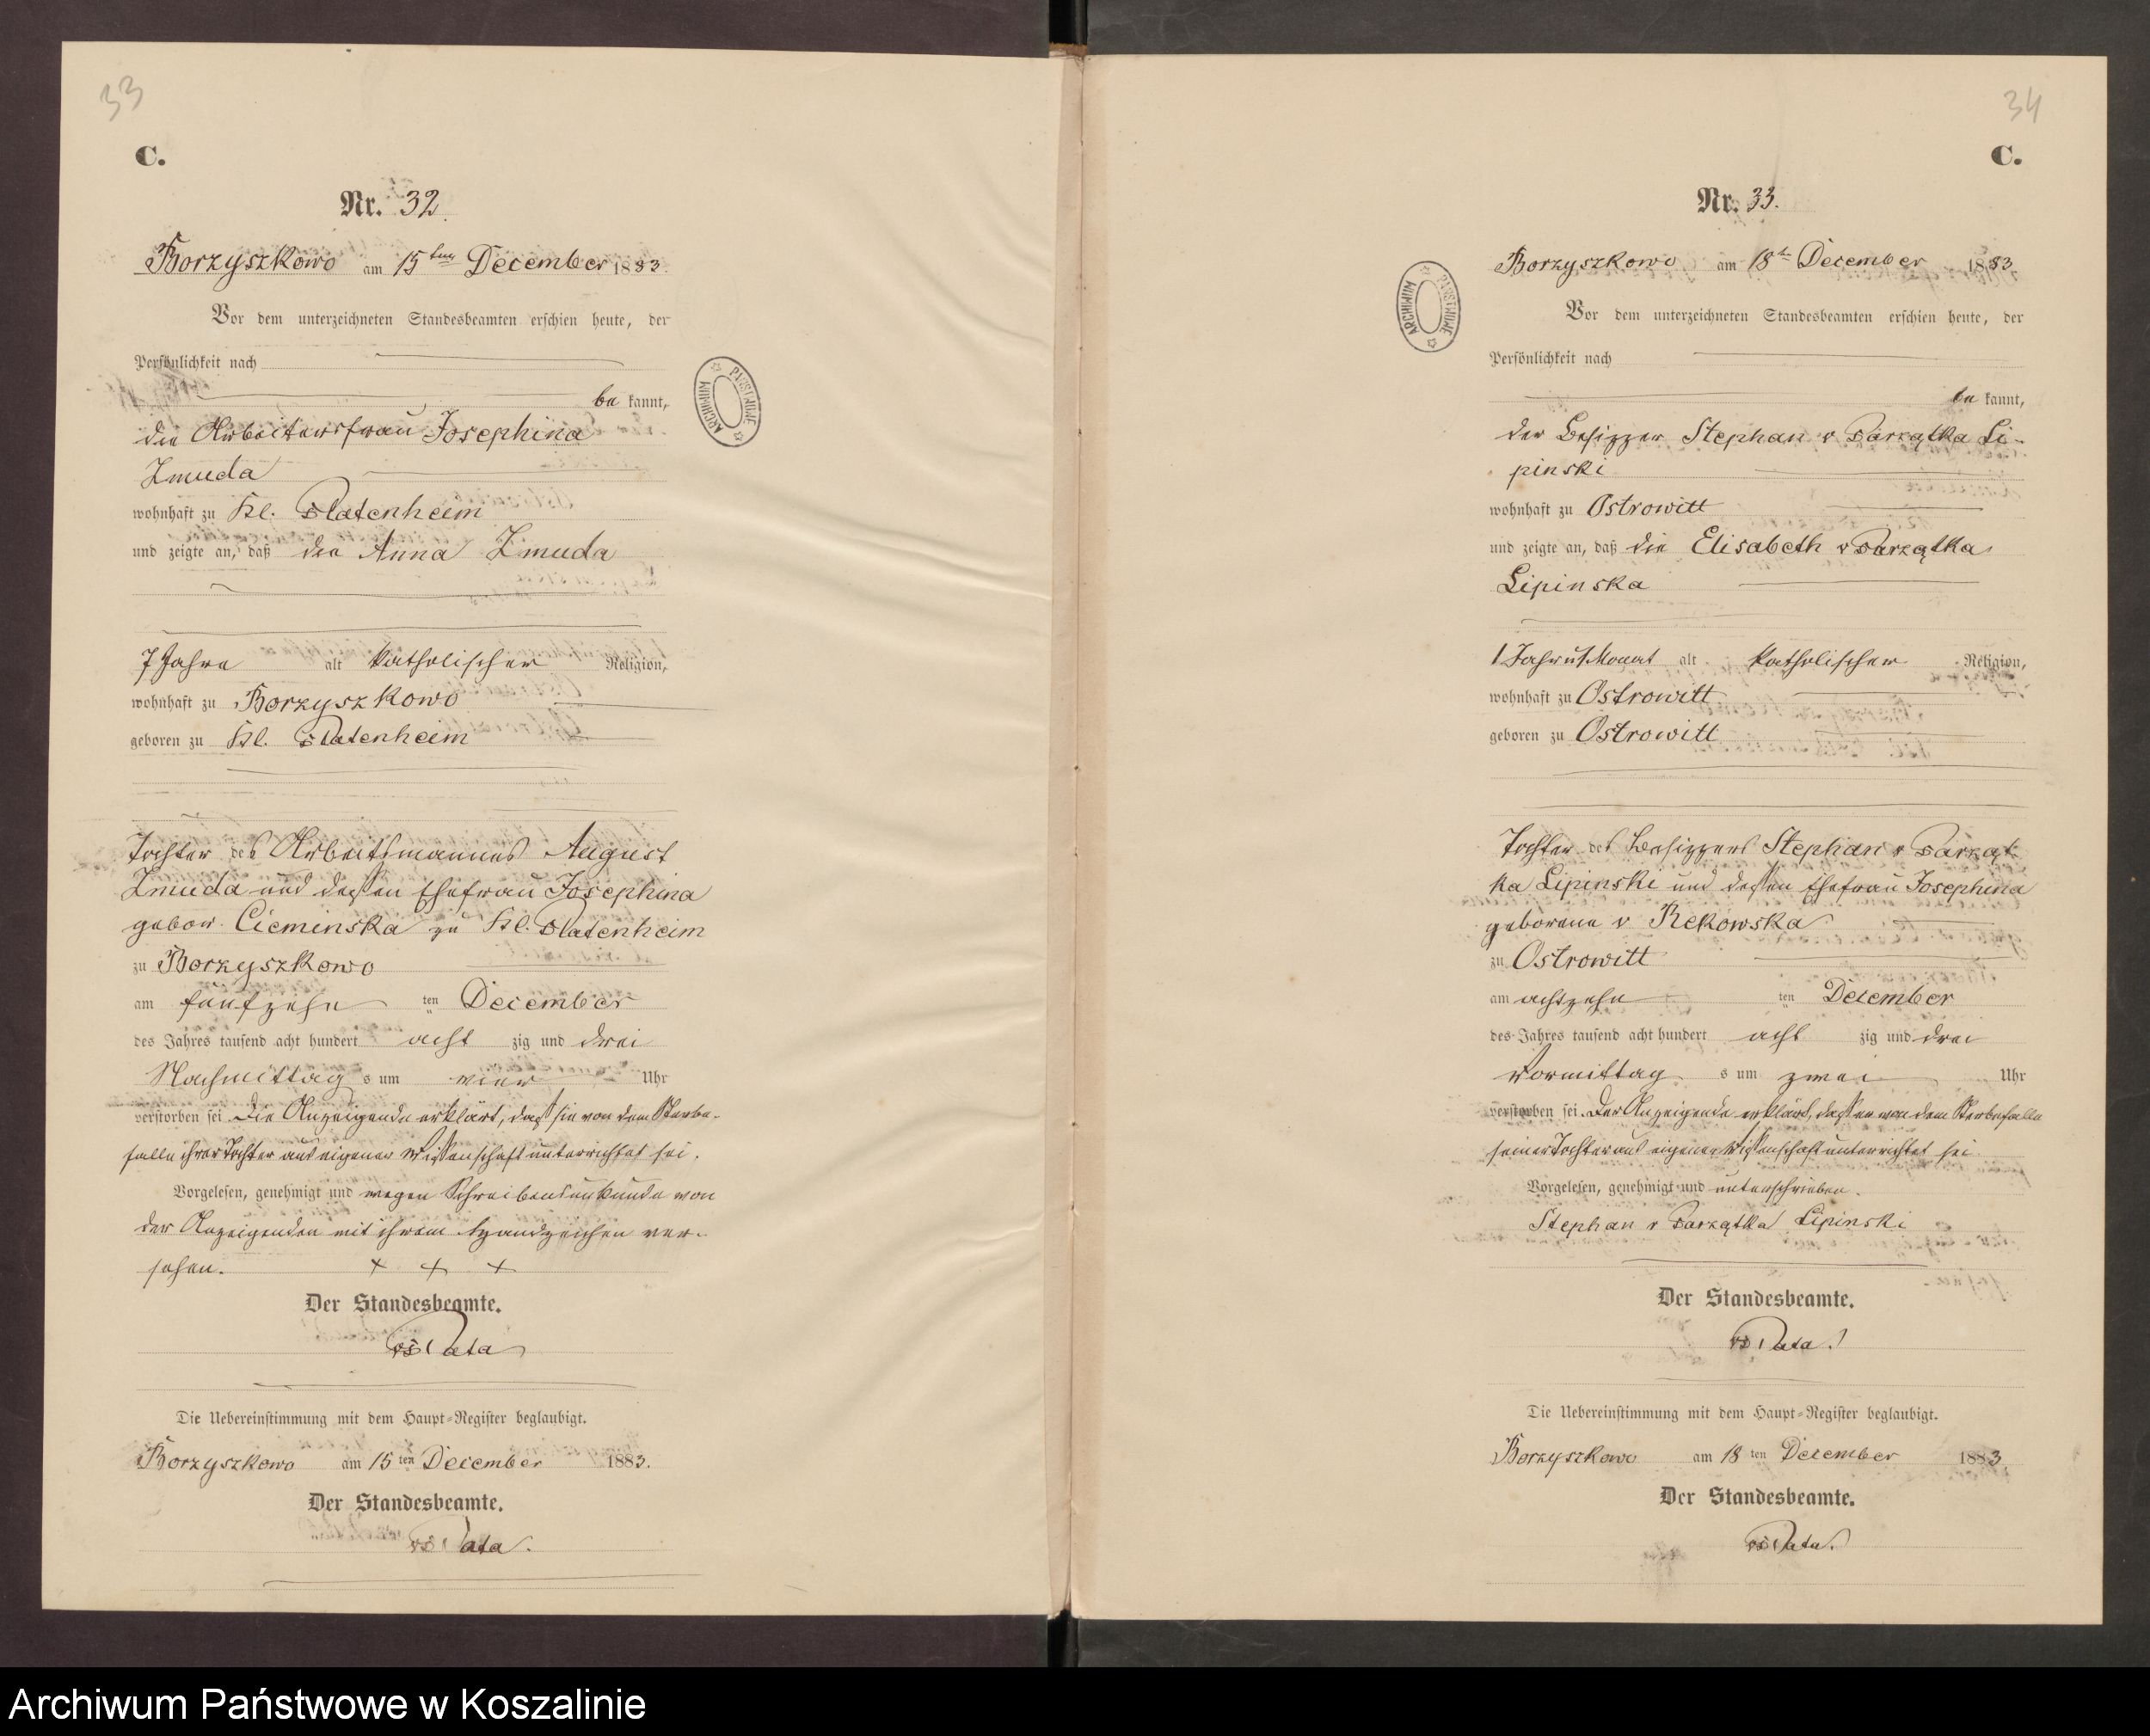 33
C.
Nr. 32.
Borzyszkowo am 15ten December 1883.
Vor dem unterzeichneten Standesbeamten erschien heute, der
Persönlichkeit nach
be kannt,
die Arbeiterfrau Josephina
Zmuda
wohnhaft zu Kl. Platenheim
und zeigte an, daß die Anna Zmuda
7 Jahre alt katholischer Religion,
wohnhaft zu Borzyszkowo
geboren zu Kl. Platenheim
Tochter des Arbeitsmannes August
Zmuda und dessen Ehefrau Josephina
gebor. Cieminska zu Kl. Platenheim
zu Borzyszkowo
am fünfzehn ten December
des Jahres tausend acht hundert acht zig und drei
Nachmittag s um vier Uhr
verstorben sei. Die Anzeigende erklärt, daß sie von dem Sterbe-
falle ihrer Tochter aus eigener Wissenschaft unterrichtet sei.
Vorgelesen, genehmigt und wegen Schreibensunkunde von
der Anzeigenden mit ihrem Handzeichen ver-
sehen. + + +
Der Standesbeamte.
Die Uebereinstimmung mit dem Haupt-Register beglaubigt.
Borzyszkowo am 15 ten December 1883.
Der Standesbeamte.
ARCHIWUM PAŃSTWOWE
34
C.
Nr. 33.
Borzyszkowo am 18ten December 1883
Vor dem unterzeichneten Standesbeamten erschien heute, der
Persönlichkeit nach
be kannt,
der Besitzer Stephan v Parzątka Li-
pinski
wohnhaft zu Ostrowitt
und zeigte an, daß die Elisabeth v Parzątka
Lipinska
1 Jahr u 1 Monat alt katholischer Religion,
wohnhaft zu Ostrowitt
geboren zu Ostrowitt
Tochter des Besitzers Stephan v Parząt-
ka Lipinski und dessen Ehefrau Josephina
geborene v Rekowska
zu Ostrowitt
am achtzehn ten December
des Jahres tausend acht hundert acht zig und drei
Vormittag s um zwei Uhr
verstorben sei. Der Anzeigende erklärt, daß er von dem Sterbefalle
seiner Tochter aus eigener Wissenschaft unterrichtet sei
Vorgelesen, genehmigt und unterschrieben.
Stephan v Parzątka Lipinski
Der Standesbeamte.
Die Uebereinstimmung mit dem Haupt-Register beglaubigt.
Borzyszkowo am 18 ten December 1883
Der Standesbeamte.
ARCHIWUM PAŃSTWOWE
Archiwum Państwowe w Koszalinie